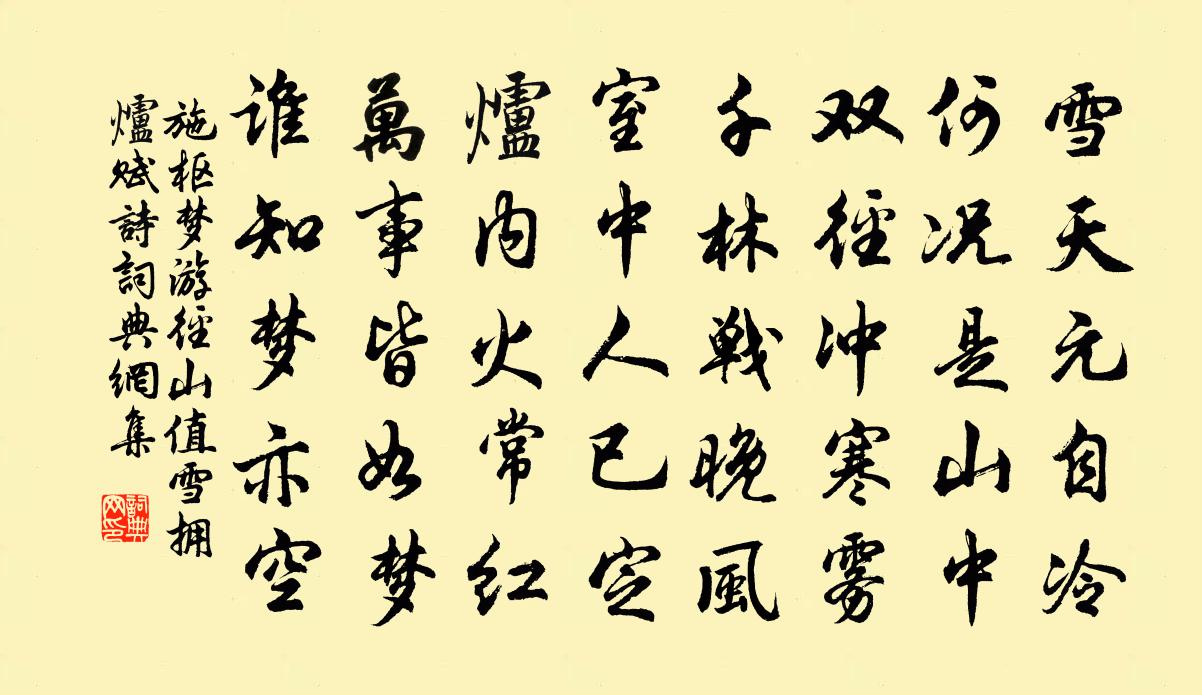 雪天元自冷
何况是山中
双徑冲寒雾
千林戦晚風
室中人已定
爐内火常红
萬事皆如梦
谁知梦亦空
施枢梦游徑山值雪拥
爐赋詩詞典網集
詞典
网印